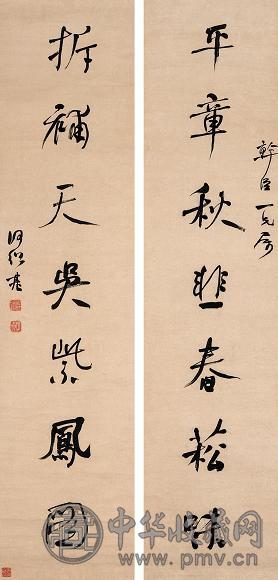 幹臣一兄屬
平章秋韭春菘味
拆補天吳紫鳳圖
何紹基
中华收藏网
www.pmv.cn